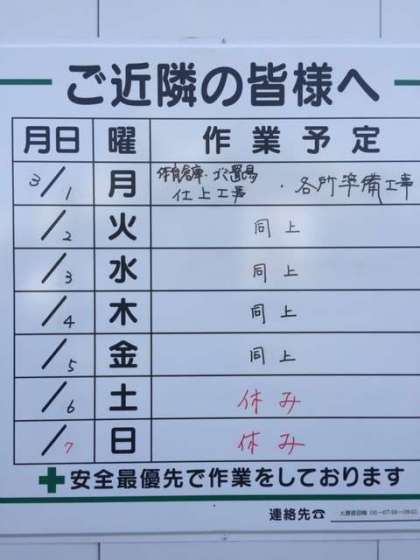 ご近隣の皆様へ
月日 曜 作業予定
3/1 月 体育倉庫・ゴミ置場 仕上工事 ・各所準備工事
/2 火 同上
/3 水 同上
/4 木 同上
/5 金 同上
/6 土 休み
/7 日 休み
安全最優先で作業をしております
連絡先☎